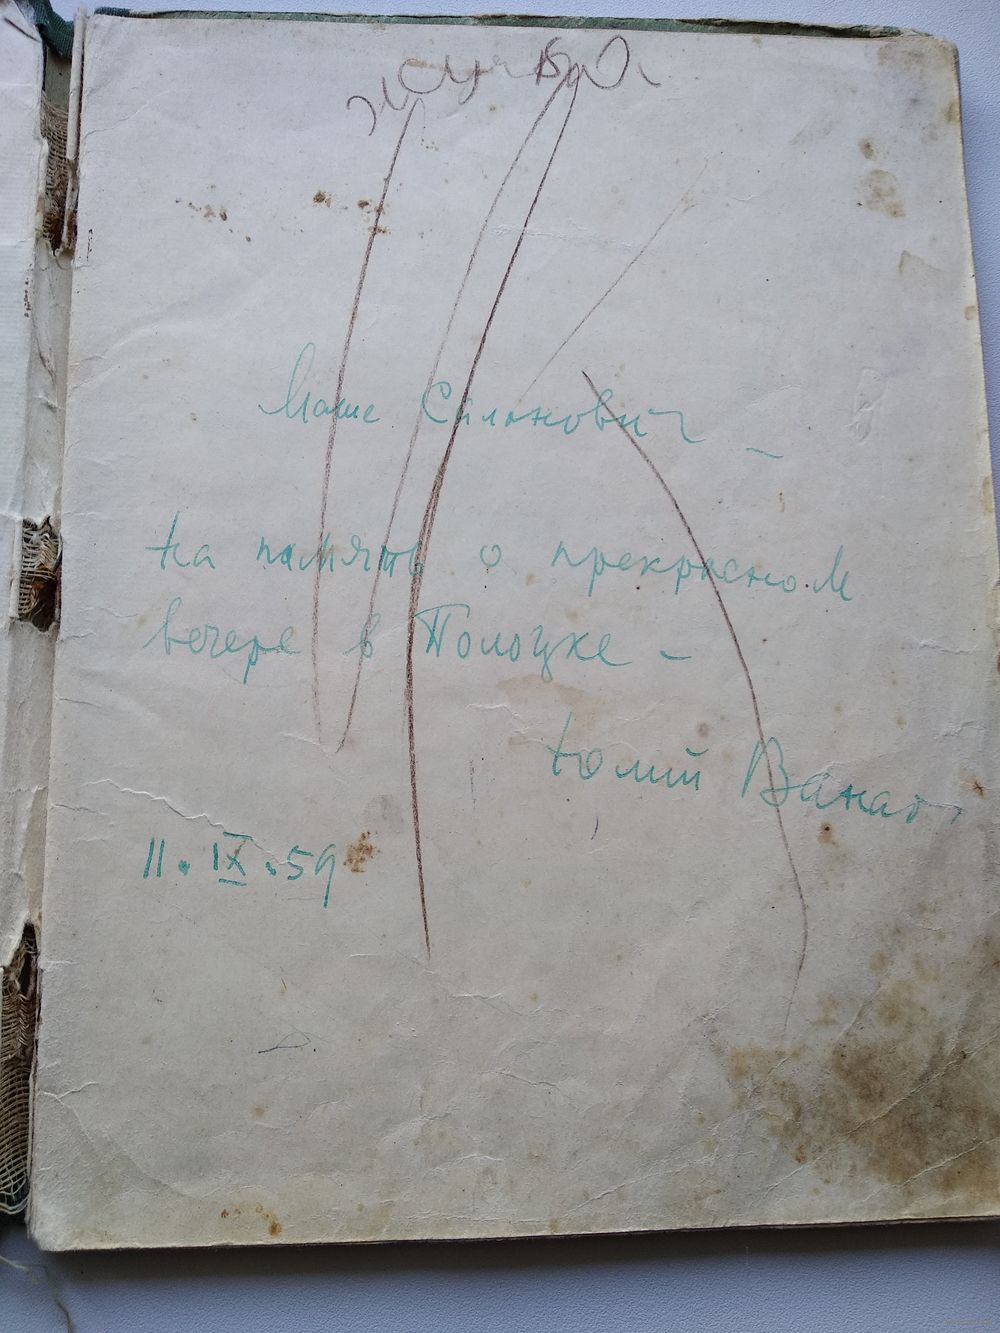 Маше Сало́нович –
На память о прекрасном
вечере в Полоцке –
Юлий Ванаг
11.IX.59